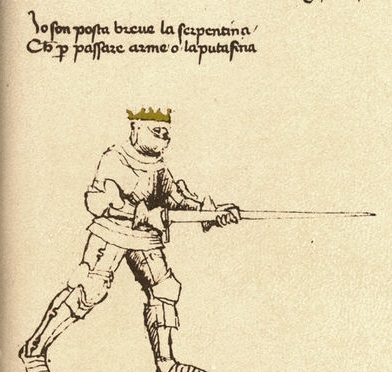 Io son posta breve la serpentina
Ch p passare arme o la puta fina